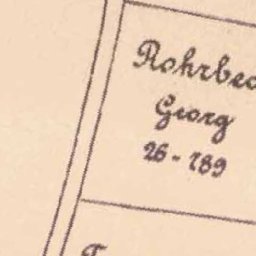 Rohrbec
Georg
26-189